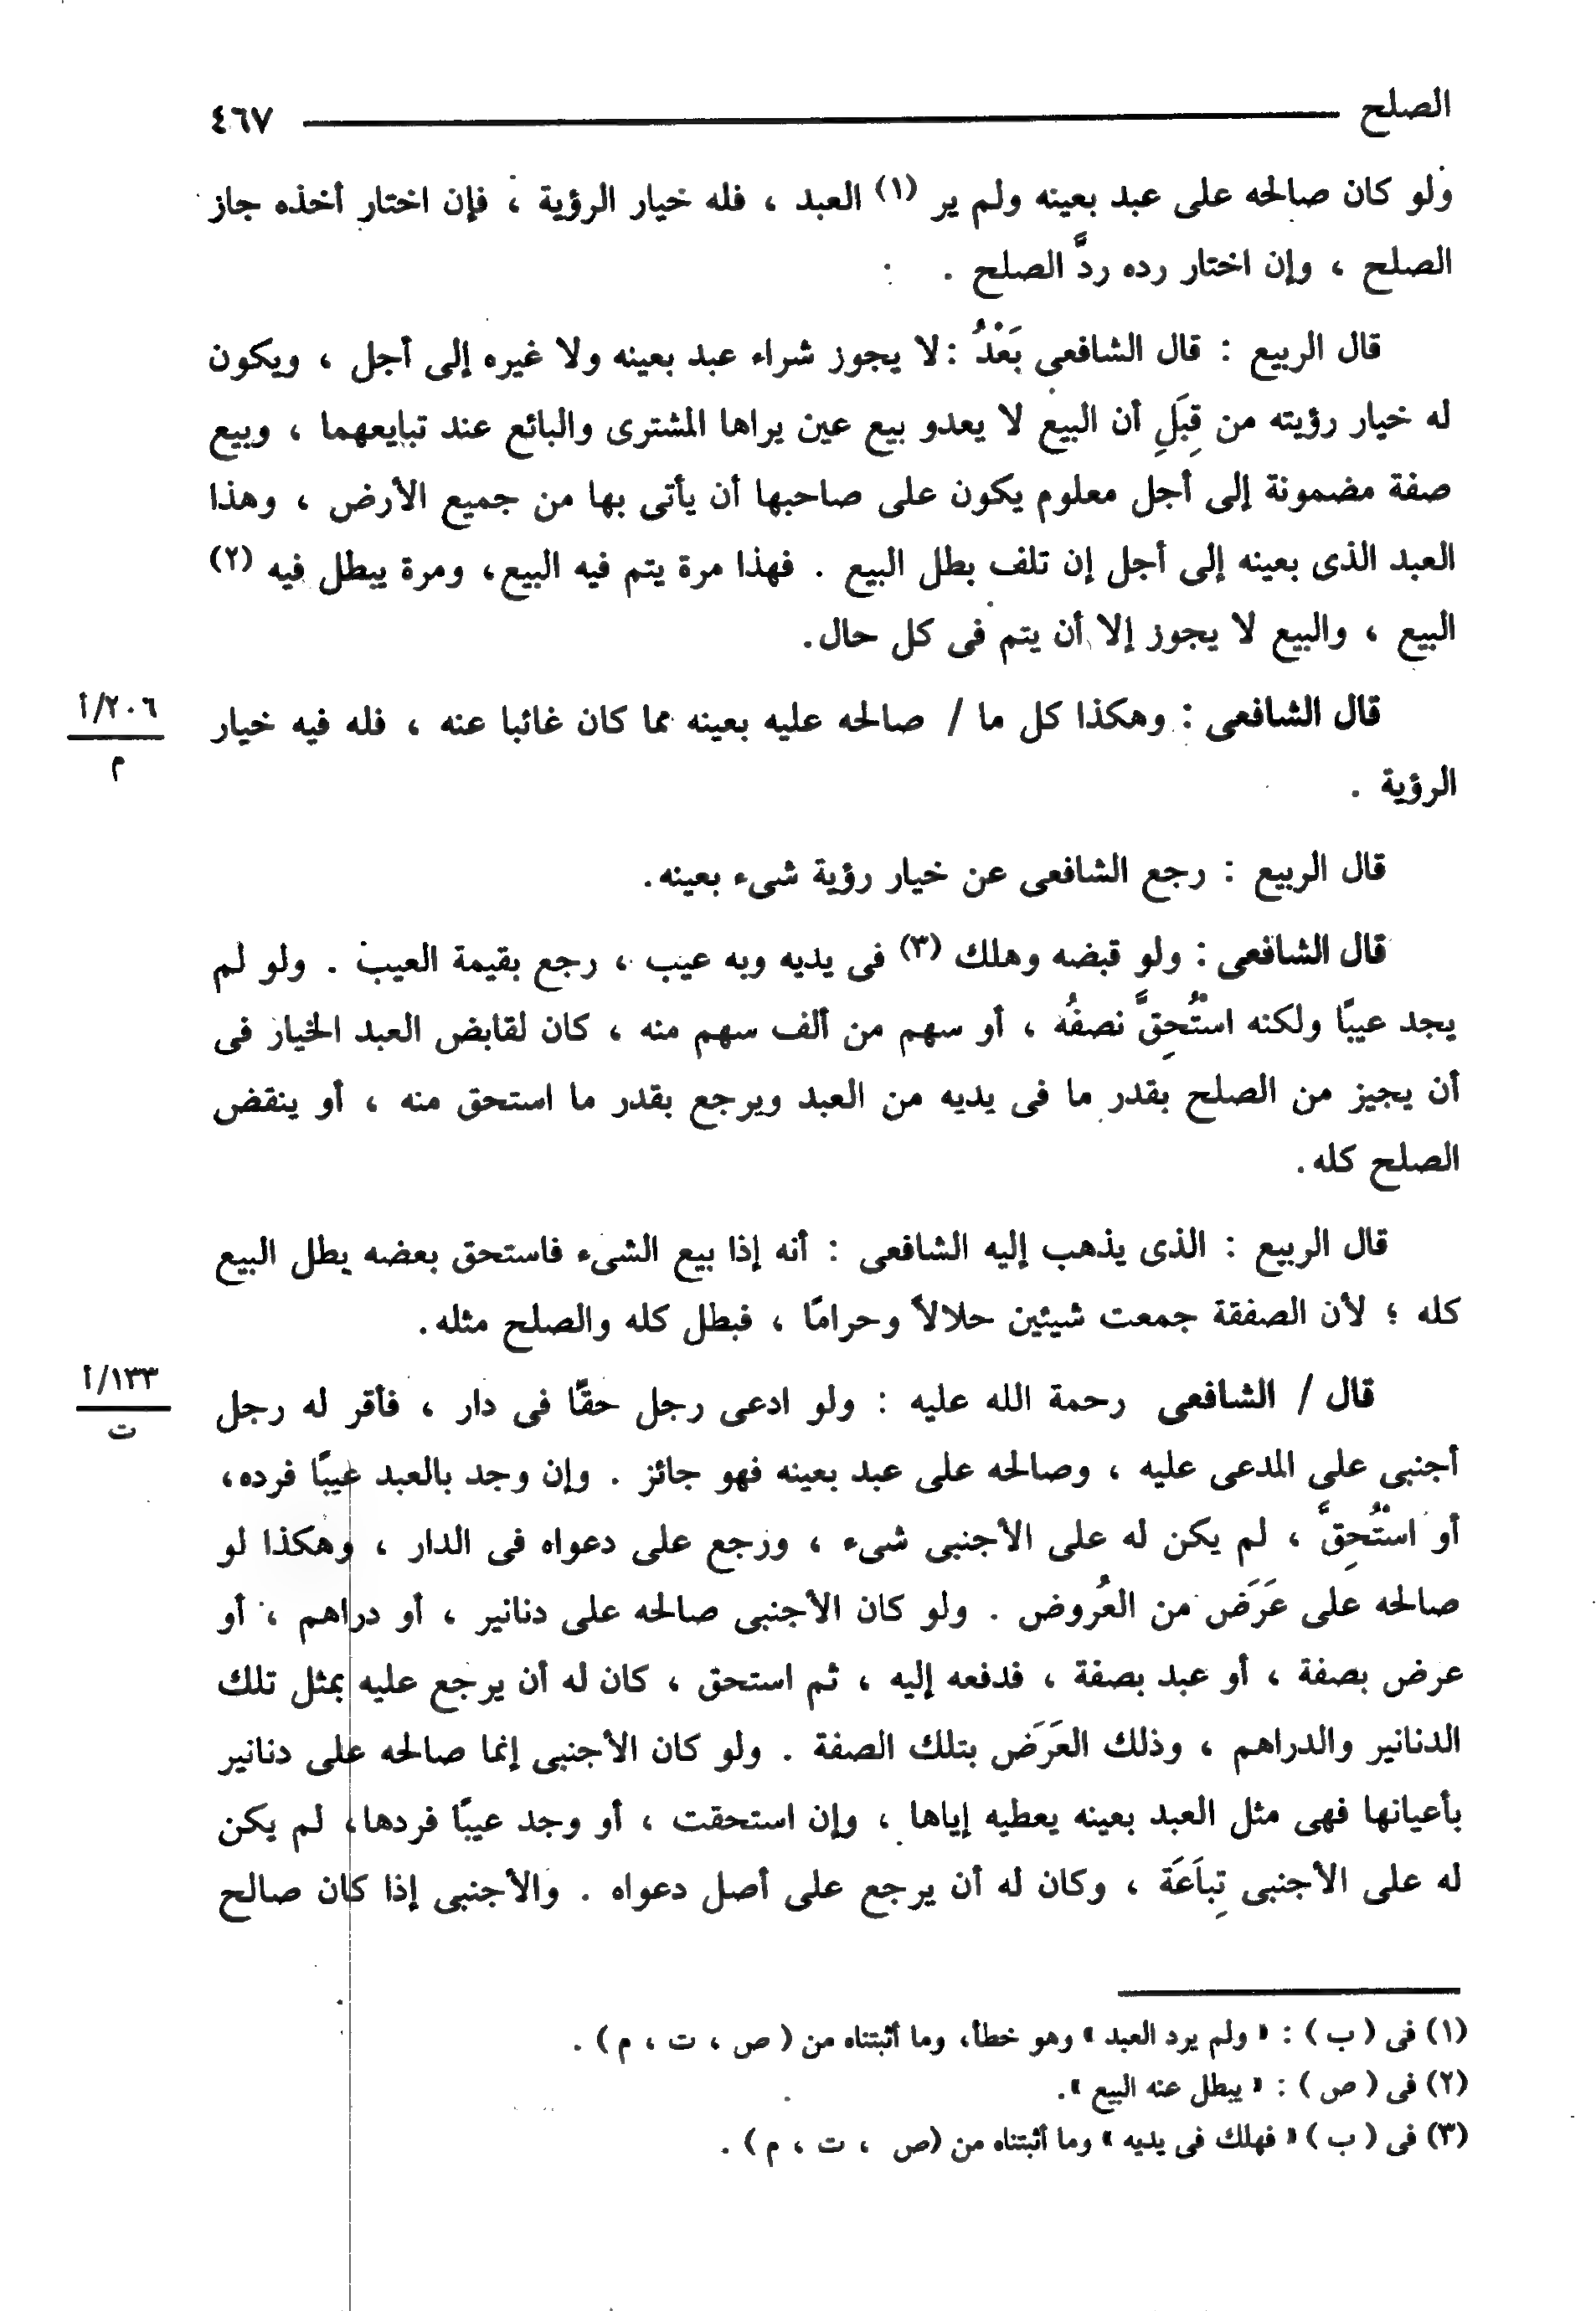 الصلح ٤٦٧
ولو كان صالحه على عبد بعينه ولم ير (١) العبد ، فله خيار الرؤية ، فإن اختار أخذه جاز
الصلح ، وإن اختار رده ردَّ الصلح .
قال الربيع : قال الشافعى بَعْدُ :لا يجوز شراء عبد بعينه ولا غيره إلى أجل ، ويكون
له خيار رؤيته من قِبَلِ أن البيع لا يعدو بيع عين يراها المشترى والبائع عند تبايعهما ، وبيع
صفة مضمونة إلى أجل معلوم يكون على صاحبها أن يأتى بها من جميع الأرض ، وهذا
العبد الذى بعينه إلى أجل إن تلف بطل البيع . فهذا مرة يتم فيه البيع، ومرة يبطل فيه (٢)
البيع ، والبيع لا يجوز إلا أن يتم فى كل حال.
قال الشافعى : وهكذا كل ما / صالحه عليه بعينه مما كان غائبا عنه ، فله فيه خيار
٢٠٦/أ
م
الرؤية .
قال الربيع : رجع الشافعى عن خيار رؤية شىء بعينه.
قال الشافعى : ولو قبضه وهلك (٣) فى يديه وبه عيب ، رجع بقيمة العيب . ولو لم
يجد عيبًا ولكنه اسْتُحِقَّ نصفُه ، أو سهم من ألف سهم منه ، كان لقابض العبد الخيار فى
أن يجيز من الصلح بقدر ما فى يديه من العبد ويرجع بقدر ما استحق منه ، أو ينقض
الصلح كله.
قال الربيع : الذى يذهب إليه الشافعى : أنه إذا بيع الشىء فاستحق بعضه بطل البيع
كله ؛ لأن الصفقة جمعت شيئين حلالاً وحرامًا ، فبطل كله والصلح مثله.
قال / الشافعى رحمة الله عليه : ولو ادعى رجل حقًا فى دار ، فأقر له رجل
١٣٣/أ
ت
أجنبى على المدعى عليه ، وصالحه على عبد بعينه فهو جائز . وإن وجد بالعبد عيبًا فرده،
أو اسْتُحِقَّ ، لم يكن له على الأجنبى شىء ، ورجع على دعواه فى الدار ، وهكذا لو
صالحه على عَرَض من العُروض . ولو كان الأجنبى صالحه على دنانير ، أو دراهم ، أو
عرض بصفة ، أو عبد بصفة ، فدفعه إليه ، ثم استحق ، كان له أن يرجع عليه بمثل تلك
الدنانير والدراهم ، وذلك العَرَض بتلك الصفة . ولو كان الأجنبى إنما صالحه على دنانير
بأعيانها فهى مثل العبد بعينه يعطيه إياها ، وإن استحقت ، أو وجد عيبًا فردها، لم يكن
له على الأجنبى تِبَاعَة ، وكان له أن يرجع على أصل دعواه . والأجنبى إذا كان صالح
(١) فى ( ب ) : « ولم يرد العبد » وهو خطأ، وما أثبتناه من ( ص ، ت ، م ) .
(٢) فى ( ص ) : « يبطل عنه البيع ».
(٣) فى ( ب ) « فهلك فى يديه » وما أثبتناه من (ص ، ت ، م ) .